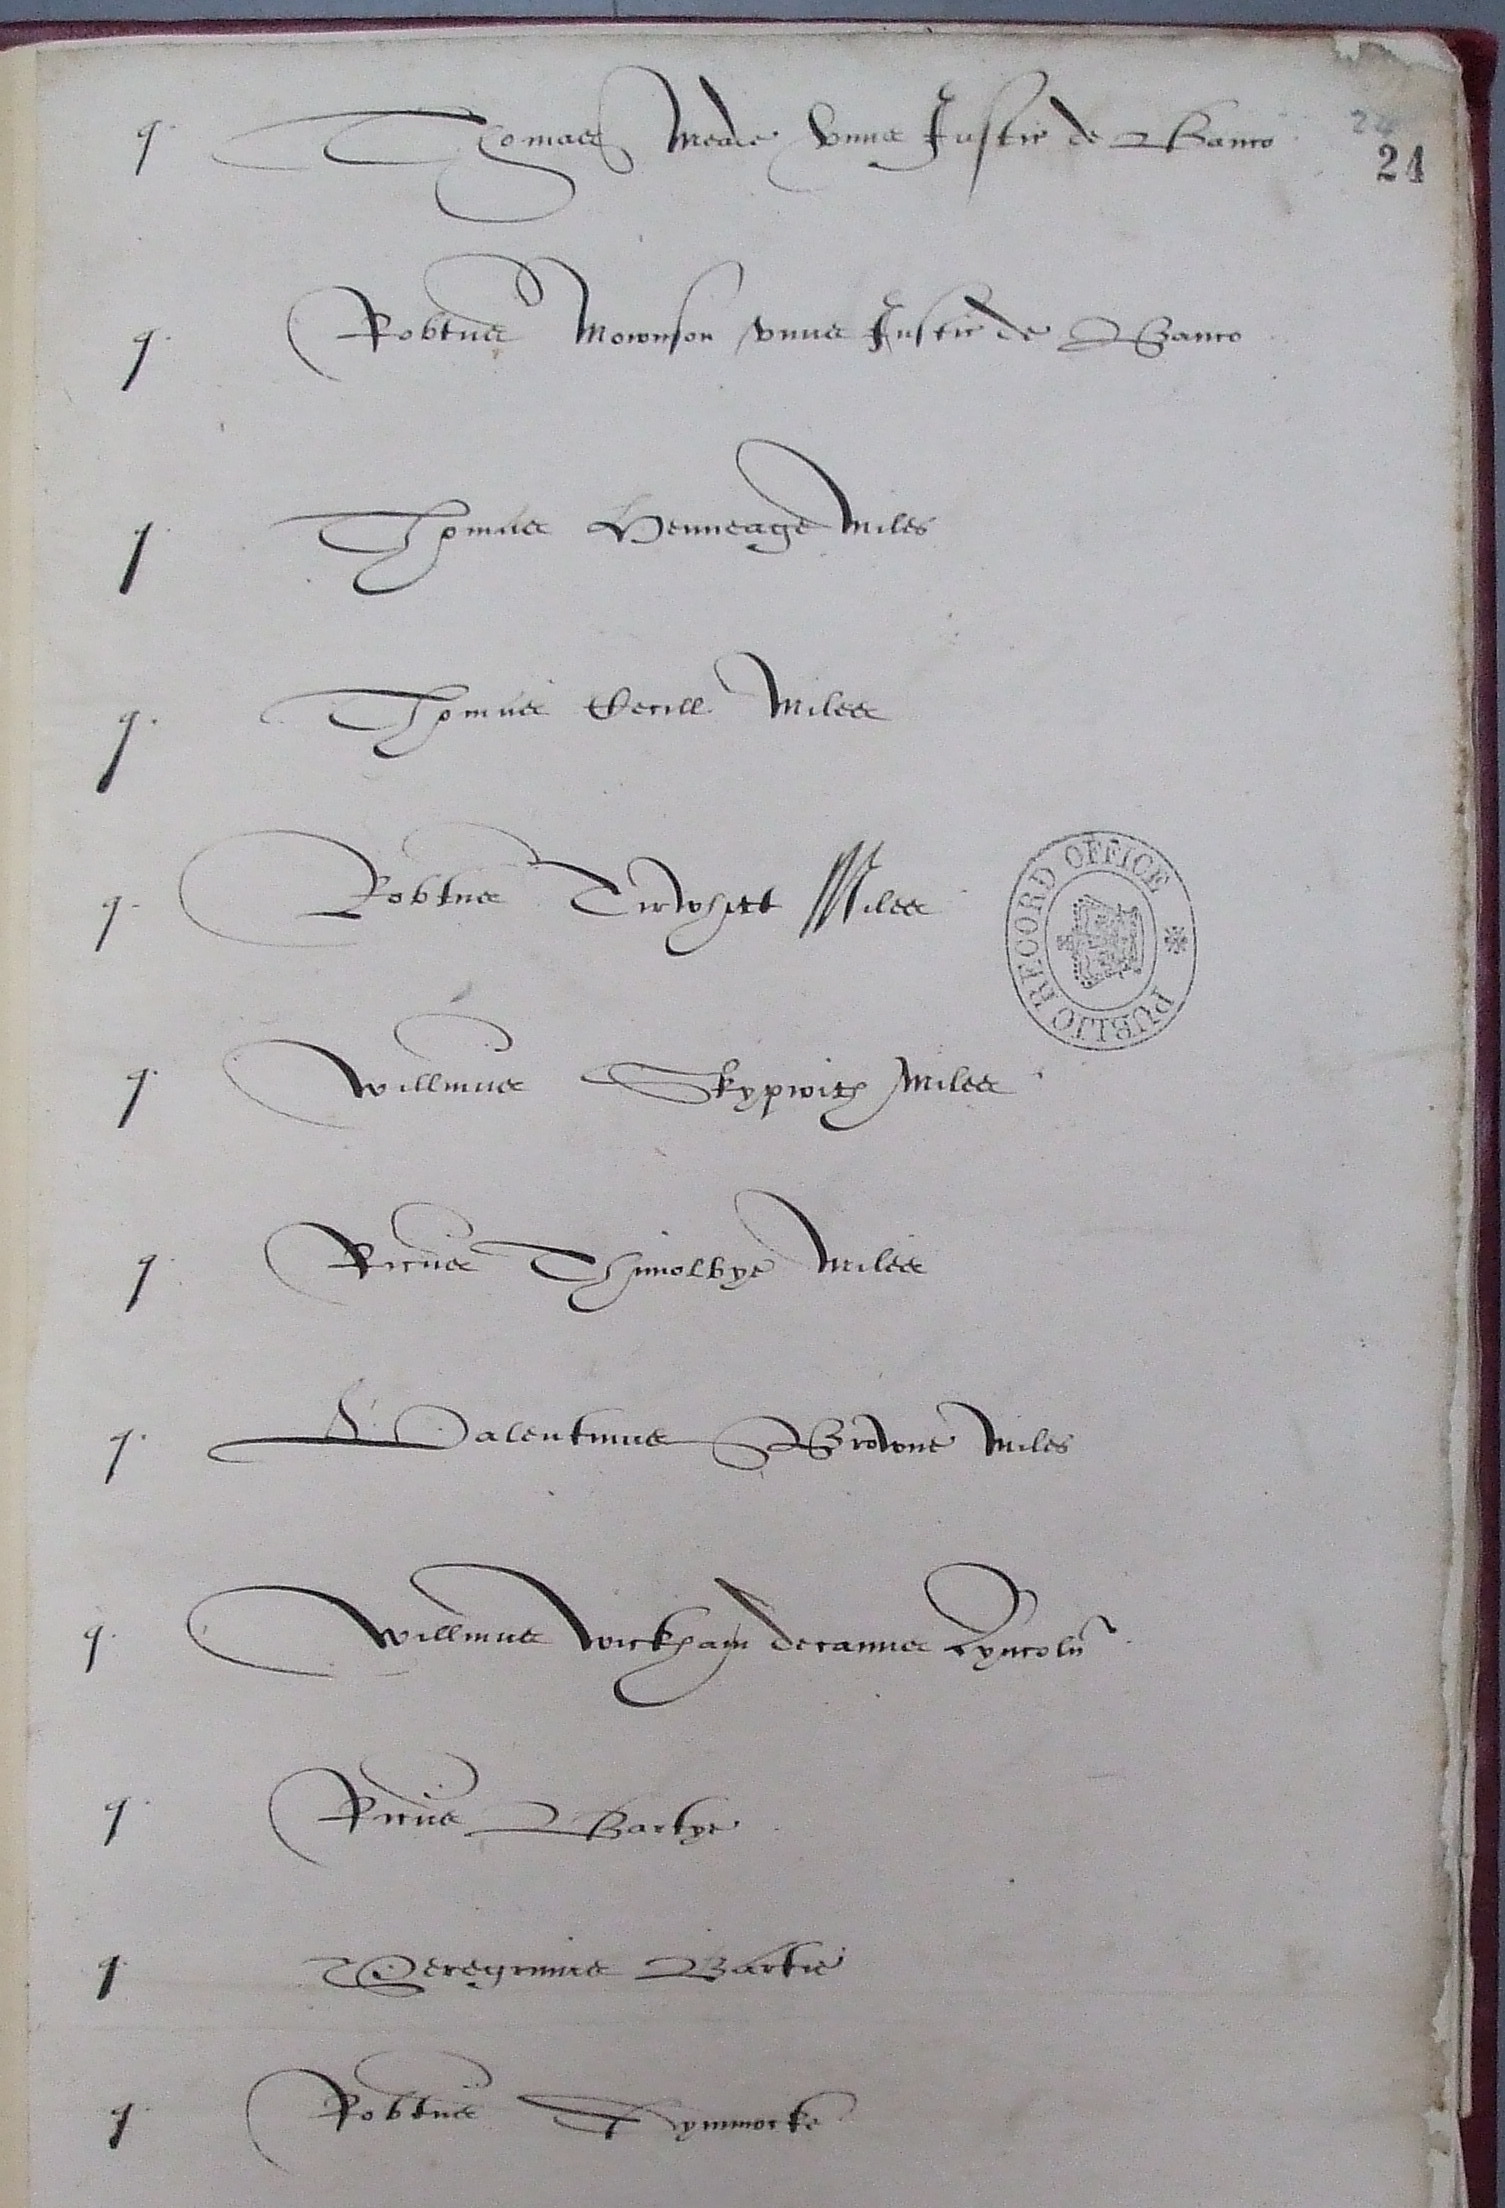 q. Thomas Meade vnus Justic de Banco
24
24
q. Robtus Mownson vnus Justic de Banco
q. Thomas Henneage Miles
q. Thomas Cecill Miles
q. Robtus Tirwhitt Miles
PUBLIC RECORD OFFICE
q. Willmus Skypwith Miles
q. Ricus Thimolbye Miles
q. Valentinus Browne Miles
q. Willmus Wickham decanus Lyncoln
q. Ricus Bartye
q. Peregrinus Bartie
q. Robtus